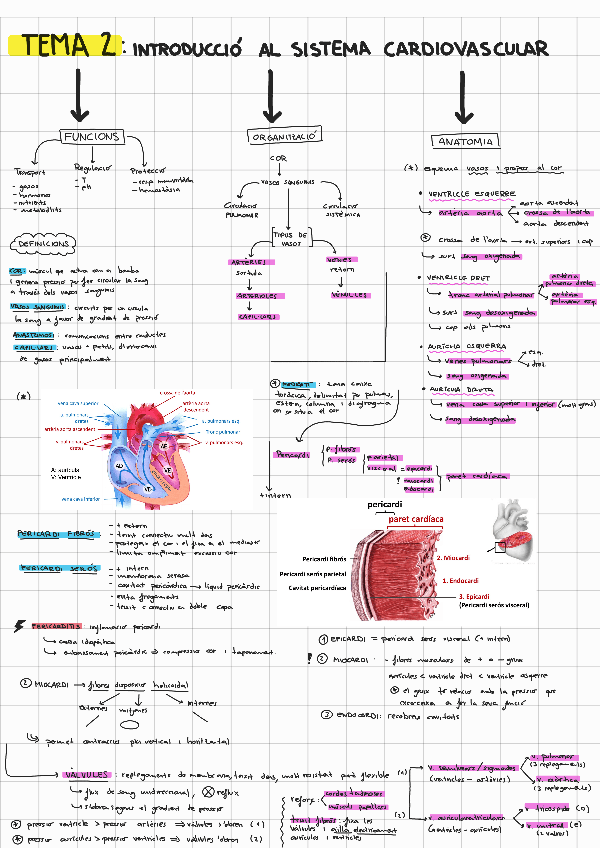 TEMA 2: INTRODUCCIÓ AL SISTEMA CARDIOVASCULAR
FUNCIONS
Transport
- gasos
- hormones
- nutrients
- metabolits
Regulació
- T
- pH
Protecció
- resp immunitària
- hemostàsia
ORGANITZACIÓ
COR
VASOS SANGUINIS
Circulació PULMONAR
Circulació SISTÈMICA
TIPUS DE VASOS
ARTÈRIES
sortida
ARTERIOLES
CAPIL·LARS
VENES
retorn
VÈNULES
ANATOMIA
(*) esquema vasos i propers al cor
• VENTRICLE ESQUERRE
artèria aorta
aorta ascendent
crossa de l'aorta
aorta descendent
* crossa de l'aorta → art. superiors i cap
surt sang oxigenada
• VENTRICLE DRET
tronc arterial pulmonar
artèria pulmonar dreta
artèria pulmonar esq.
surt sang desoxigenada
cap als pulmons
• AURÍCULA ESQUERRA
venes pulmonars
esq.
dret
sang oxigenada
• AURÍCULA DRETA
vena cava superior i inferior (més grans)
sang desoxigenada
DEFINICIONS
COR: múscul que actua com a bomba
i genera pressió per fer circular la sang
a través dels vasos sanguinis
VASOS SANGUINIS: circuits per on circula
la sang a favor de gradient de pressió
ANASTOMOSI: comunicacions entre conductes
CAPIL·LARS: vasos + petits, d'intercanvi
de gasos principalment
(*)
vena cava superior
a. pulmonars dretes
artèria aorta ascendent
v. pulmonars dretes
vena cava inferior
crossa de l'aorta
artèria aorta descendent
a. pulmonars esq.
Tronc pulmonar
v. pulmonars esq.
A: aurícula
V: Ventricle
AD
AE
VD
VE
: zona caixa
toràcica, delimitat per pulmons,
estern, columna i diafragma
on se situa el cor
Pericardi
P. fibrós
P. serós
parietal
visceral = epicardi
miocardi
endocardi
paret cardíaca
+ intern
PERICARDI FIBRÓS
- + extern
- teixit connectiu molt dens
- protegeix el cor i el fixa a el mediastí
- limita ompliment excessiu cor
PERICARDI SERÓS
- + intern
- membrana serosa
- cavitat pericàrdica → líquid pericàrdic
- evita fregaments
- teixit connectiu en doble capa
pericardi
paret cardíaca
Pericardi fibrós
Pericardi serós parietal
Cavitat pericardíaca
2. Miocardi
1. Endocardi
3. Epicardi
(Pericardi serós visceral)
PERICARDITIS: inflamació pericardi
causa idiopàtica
embassament pericàrdic ⇒ compressió cor i taponament.
① EPICARDI = pericardi serós visceral (+ intern)
! ② MIOCARDI: - fibres musculars de + o - gruix
aurícules < ventricle dret < ventricle esquerre
* el gruix té relació amb la pressió que
ha de fer la seva funció
③ ENDOCARDI: recobreix cavitats
② MIOCARDI → fibres disposició helicoidal
externes
mitjanes
internes
permet contracció pla vertical i horitzontal
VÀLVULES: replegaments de membrana, teixit dens, molt resistent però flexible
flux de sang unidireccional, reflux
s'obren segons el gradient de pressió
* pressió ventricle > pressió artèries ⇒ vàlvules s'obren (1)
* pressió aurícules > pressió ventricles ⇒ vàlvules s'obren (2)
reforç:
cordes tendinoses
músculs papil·lars
teixit fibrós: fixa les
vàlvules i aïlla elèctricament
aurícules i ventricles
(1)
(2)
v. semilunars/sigmoides
(ventricles - artèries)
v. pulmonar
(3 replegaments)
v. aòrtica
(3 replegaments)
v. auriculoventriculars
(ventricles - aurícules)
v. tricúspide (D)
v. mitral (E)
(2 valves)